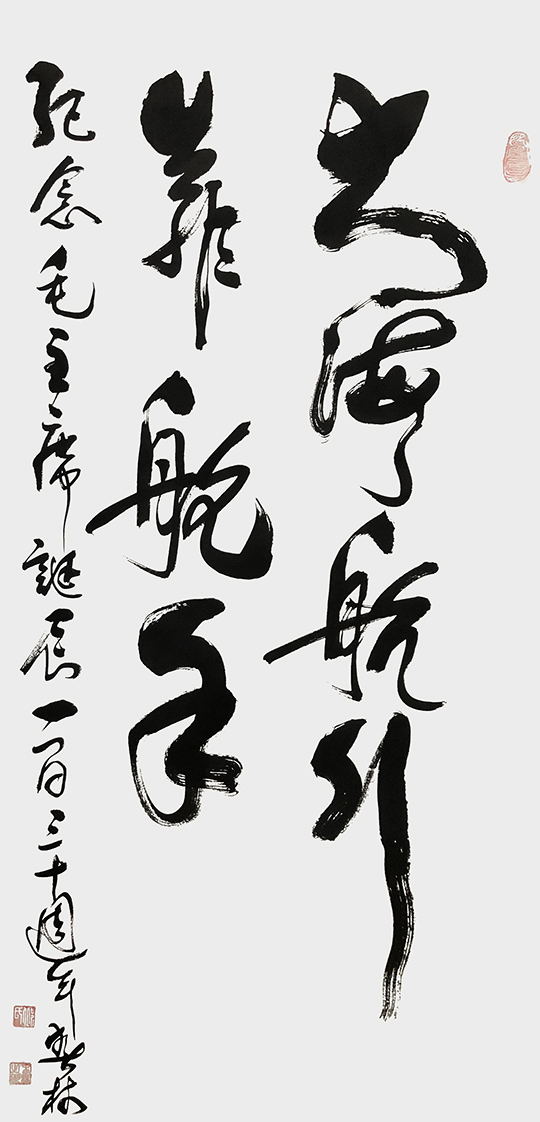 大海航行
靠舵手
紀念毛主席誕辰一百三十週年